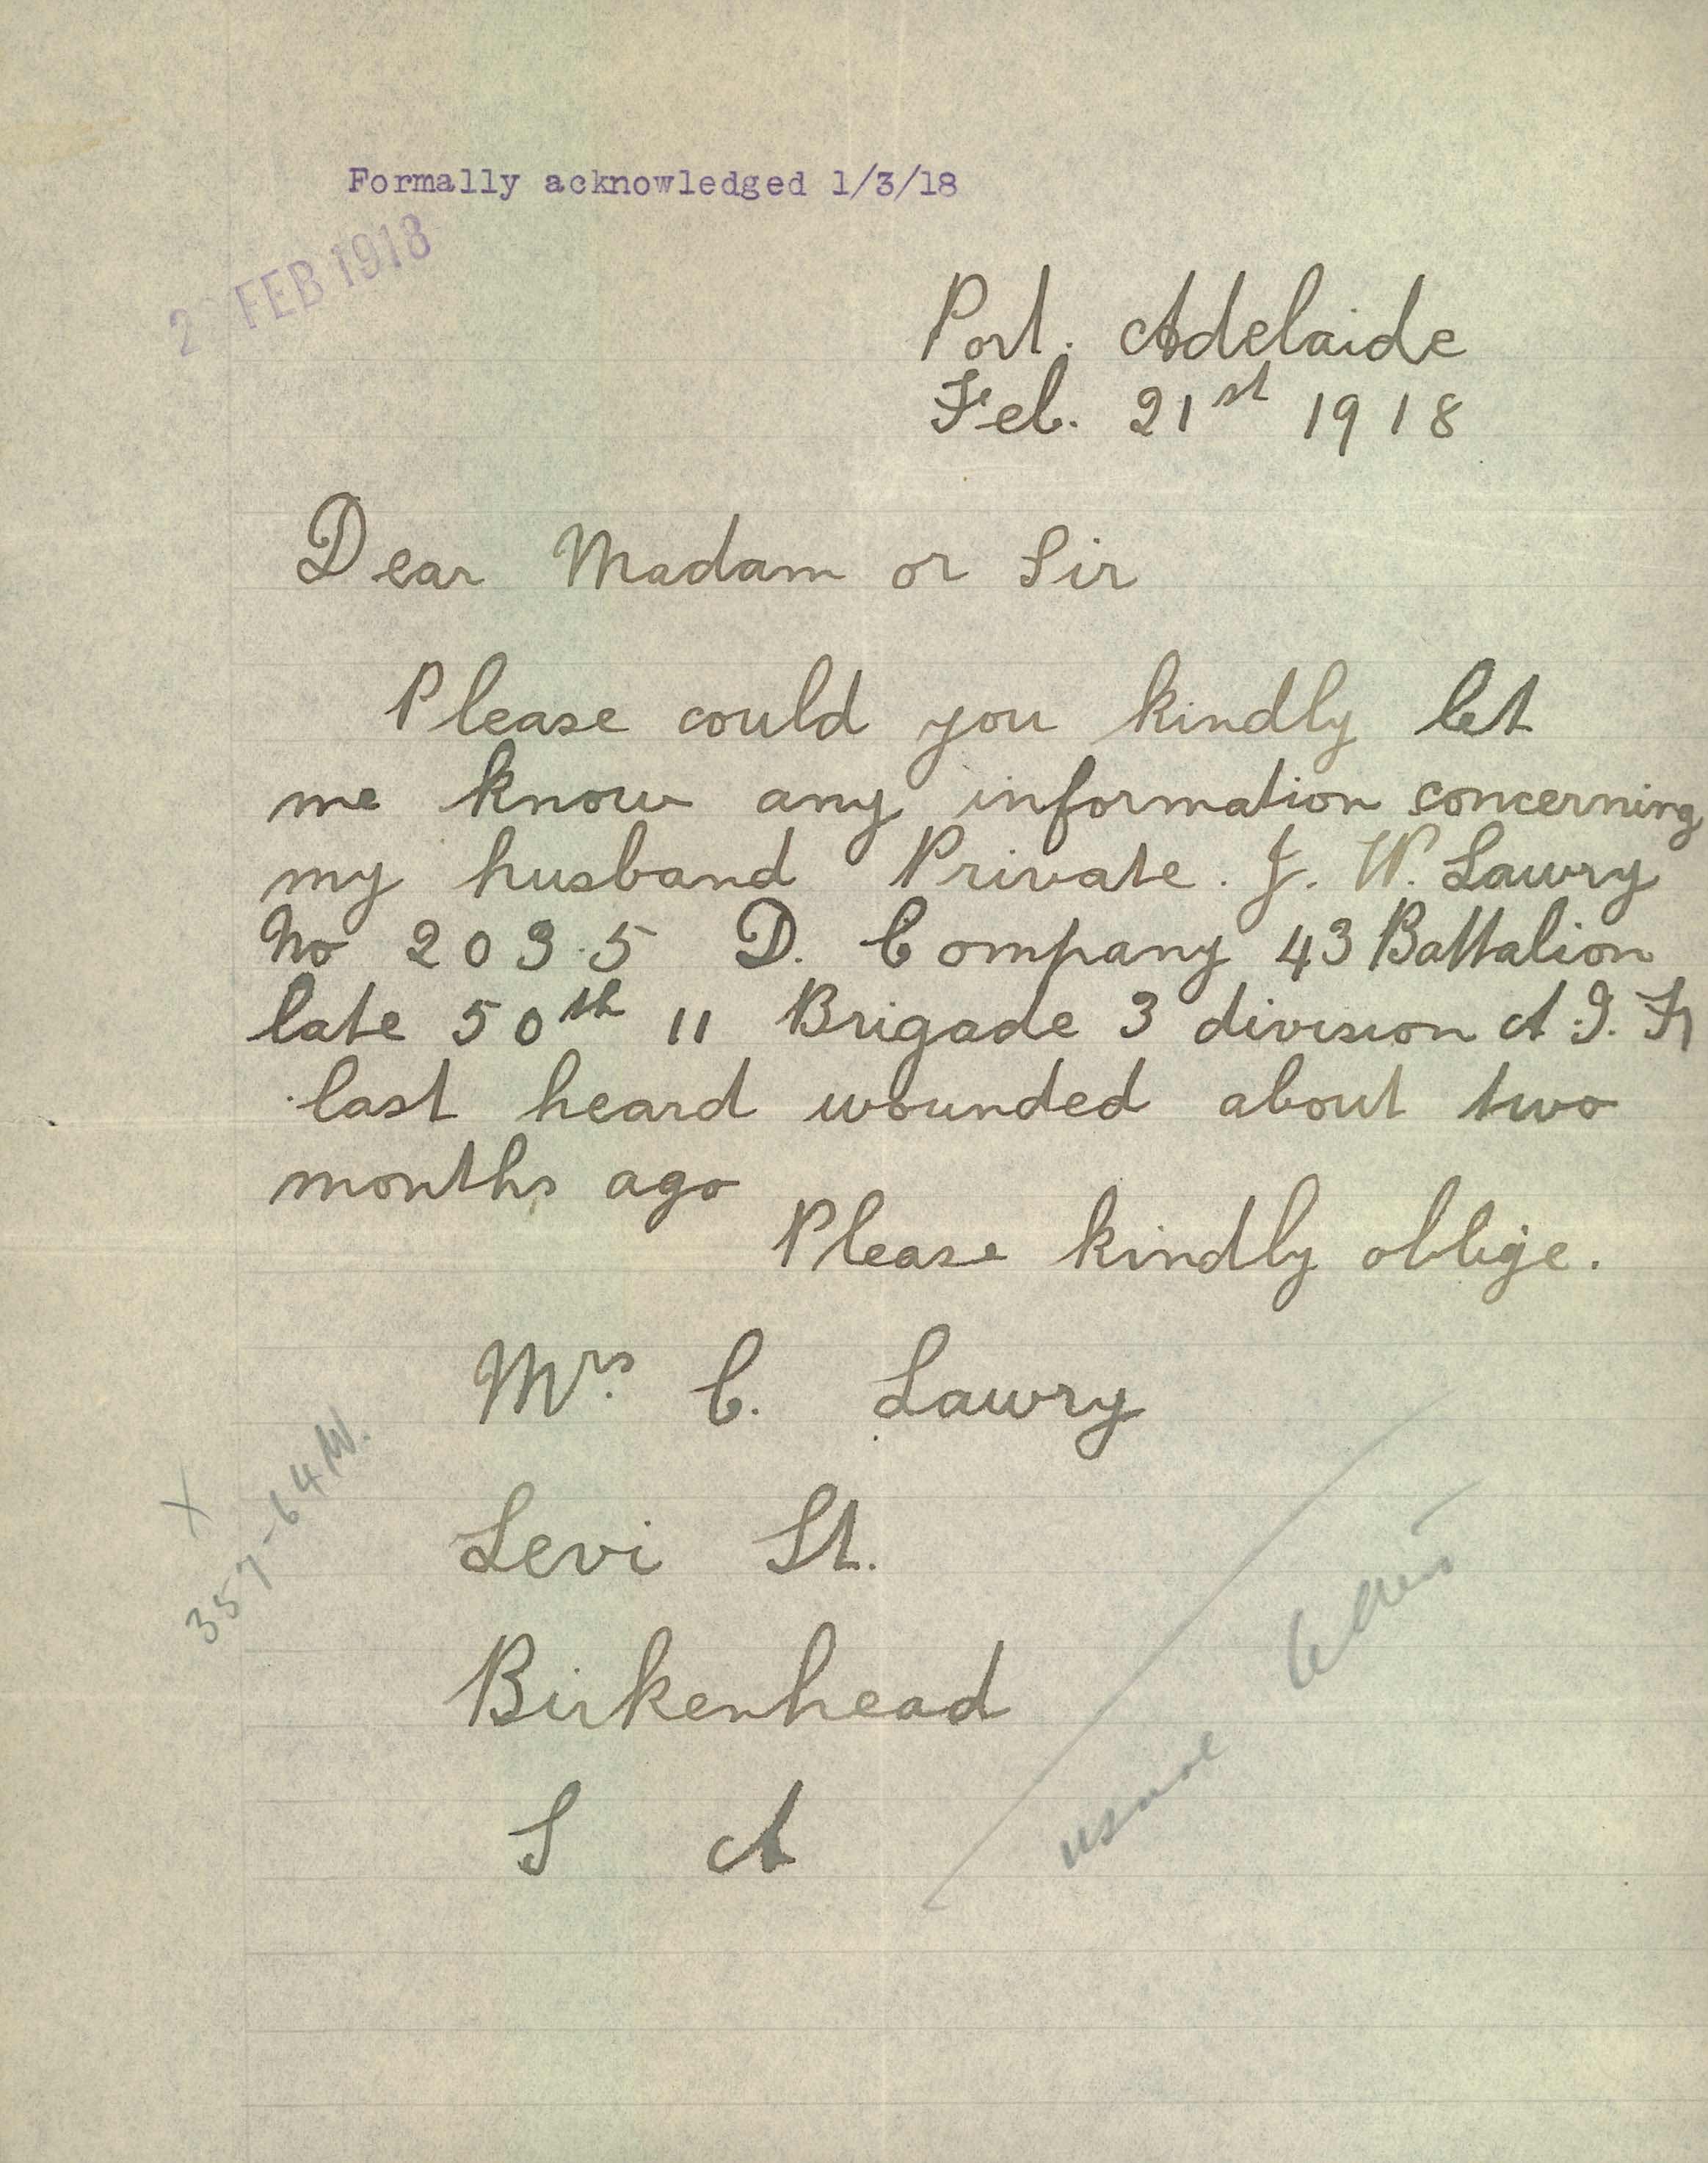 Formally acknowledged 1/3/18
FEB 1918
Port. Adelaide
Feb. 21st 1918
Dear Madam or Sir
Please could you kindly let
me know any information concerning
my husband Private. J. W. Lawry
No 2095 D. Company 43 Battalion
late 50th 11 Brigade 3 division A.I.F
last heard wounded about two
months ago
Please kindly oblige.
Mrs. C. Lawry
Levi St.
Birkenhead
S A
X
357-64W.
usual